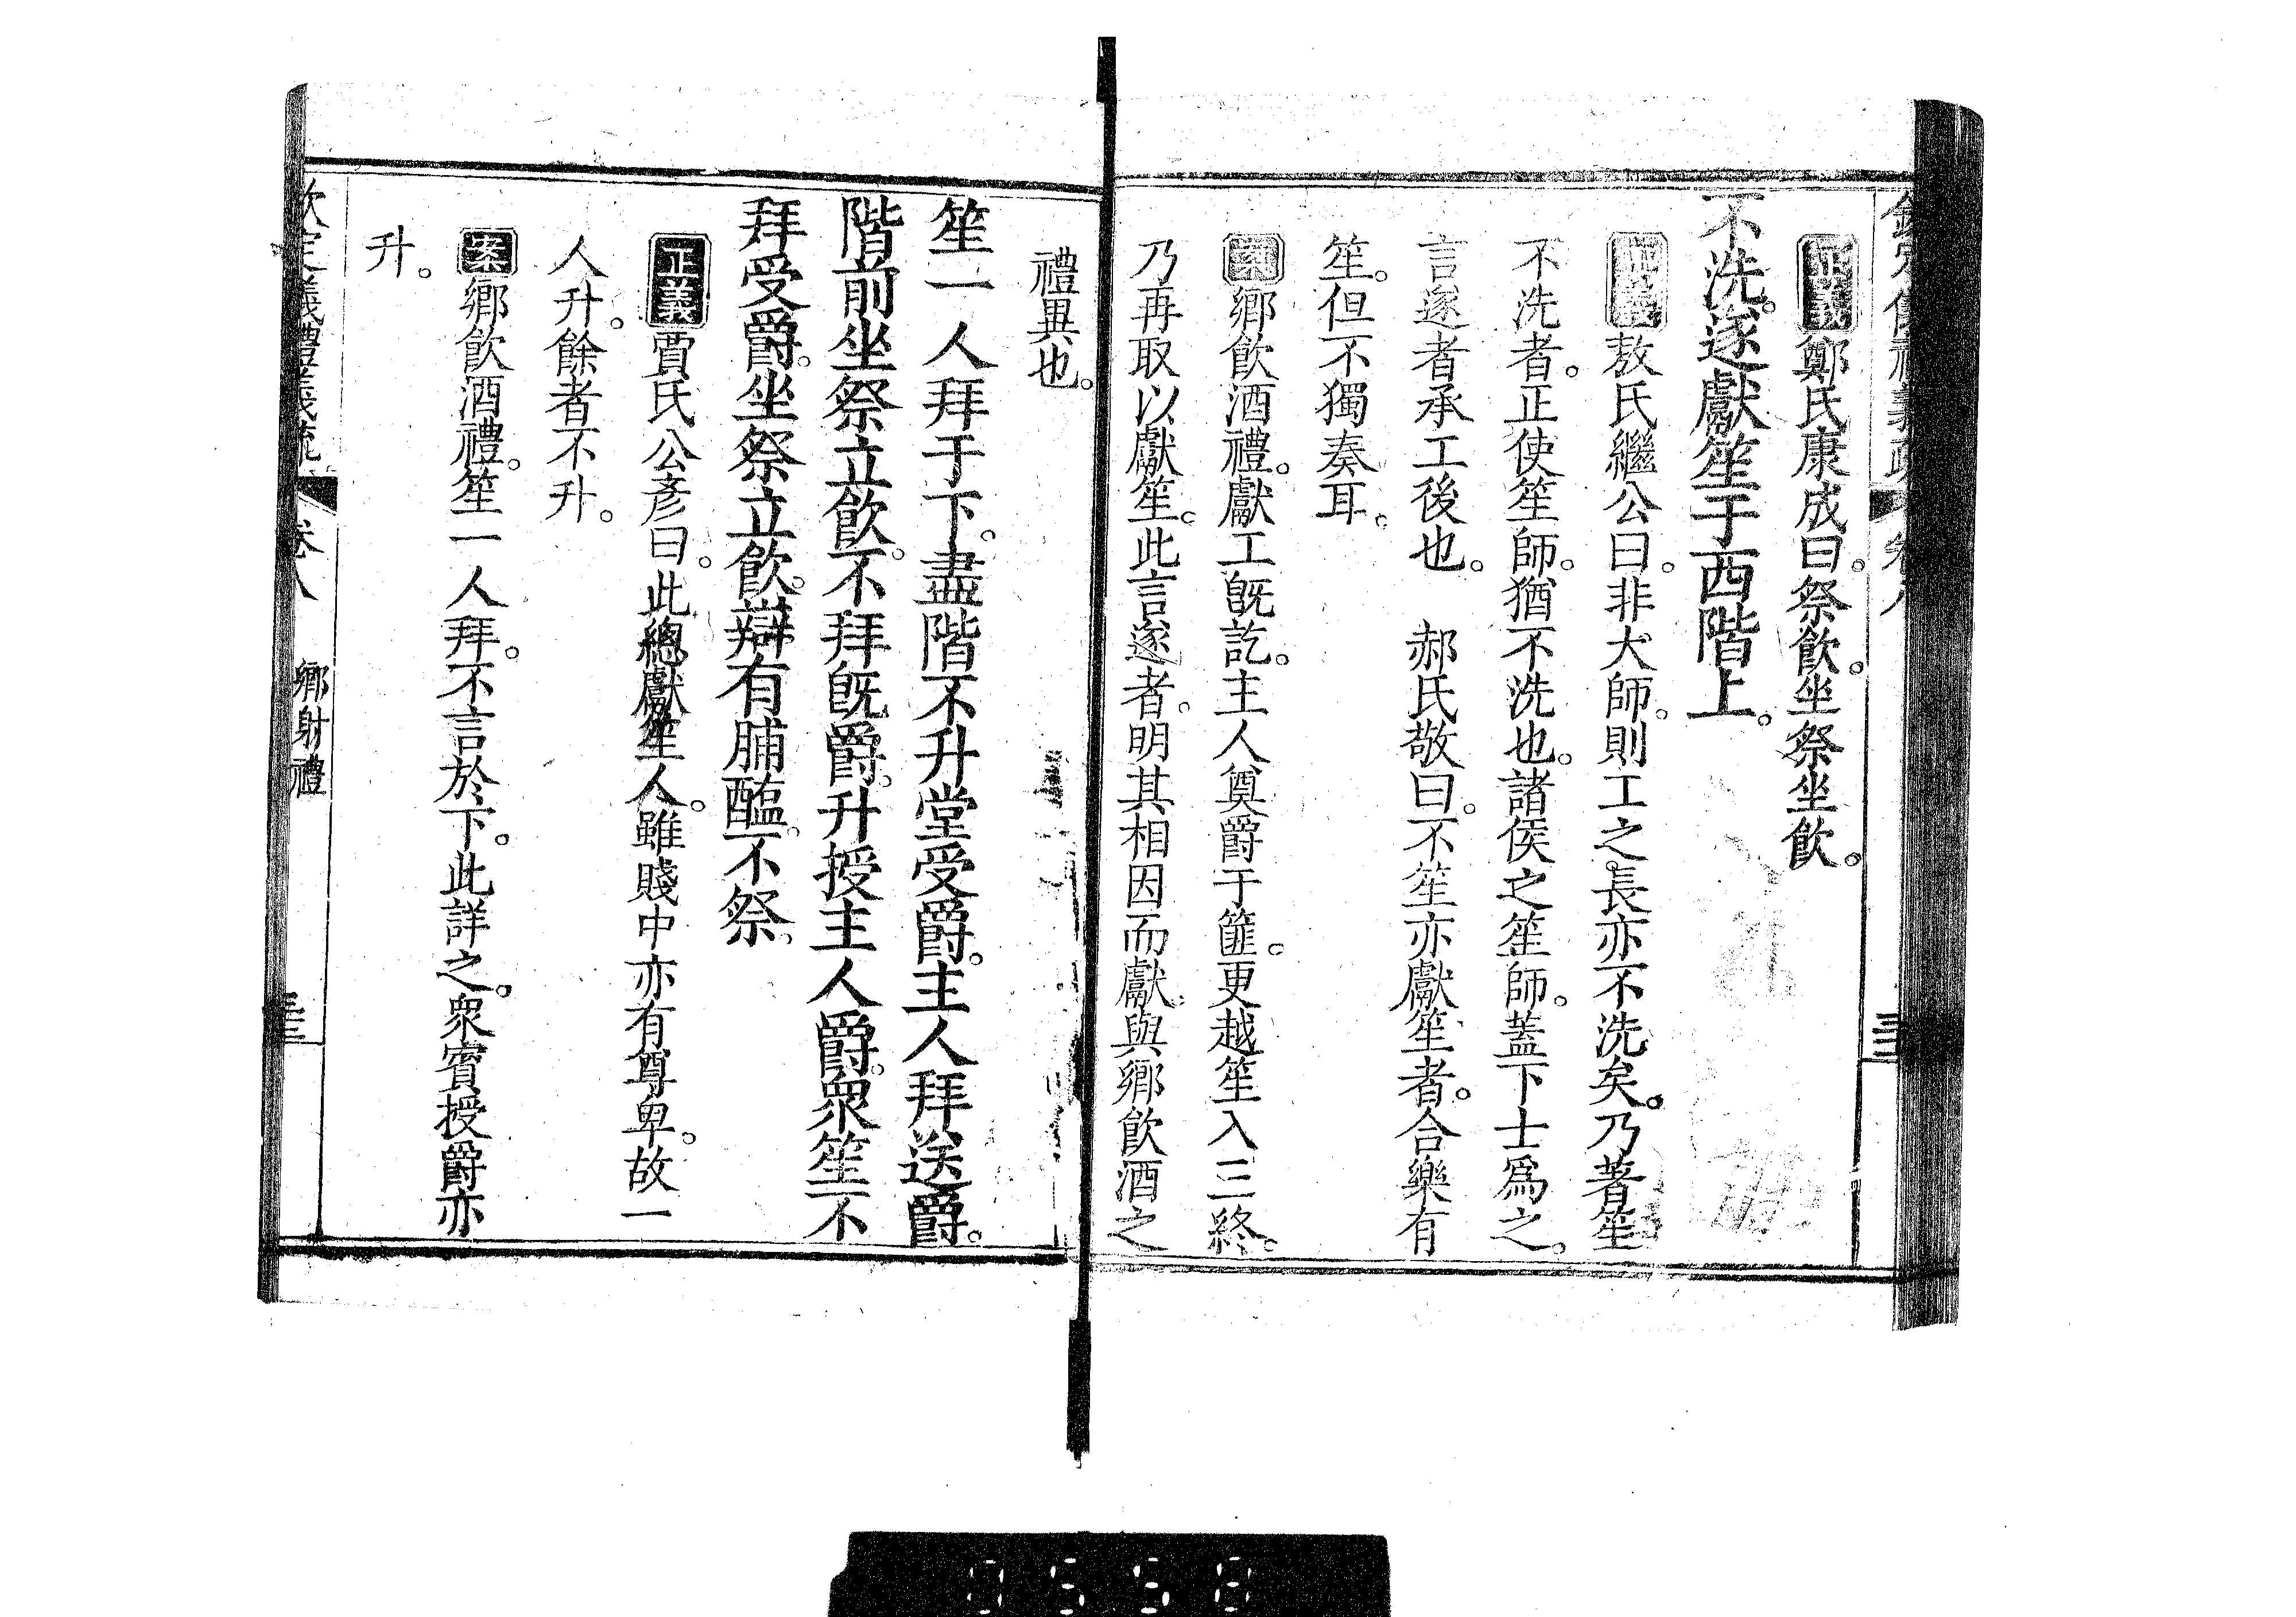 正義鄭氏康成曰。祭飲。坐祭坐飲。
不洗。遂獻笙于西階上。
正義敖氏繼公曰。非大師。則工之長亦不洗矣。乃著笙
不洗者。正使笙師。猶不洗也。諸侯之笙師。蓋下士爲之。
言遂者承工後也。郝氏敬曰。不笙亦獻笙者。合樂有
笙。但不獨奏耳。
案鄉飲酒禮。獻工旣訖。主人奠爵于篚。更越笙入三終。
乃再取以獻笙。此言遂者。明其相因而獻。與鄉飲酒之
禮異也。
笙一人拜于下。盡階不升堂受爵。主人拜送爵。
階前坐祭立飲。不拜旣爵。升授主人爵。衆笙不
拜受爵。坐祭立飲。辯有脯醢。不祭。
正義賈氏公彥曰。此總獻笙人。雖賤中亦有尊卑。故一
人升。餘者不升。
案鄉飲酒禮。笙一人拜。不言於下。此詳之。衆賓授爵亦
升。
欽定義禮義疏 卷八 鄉射禮